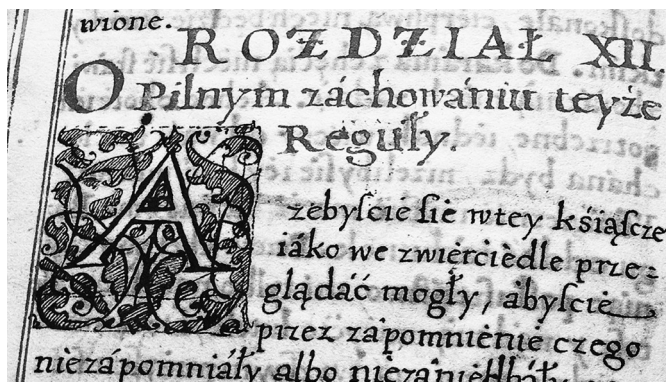 wione.
ROZDZIAŁ XII.
O Pilnym záchowániu teyże
Reguły.
Ażebyſcie ſie wtey kśiąſzce
iáko we zwierciedle prze=
glądáć mogły, ábyſcie
przez zapomnienie czego
niezápomniáły álbo niezániedbáły